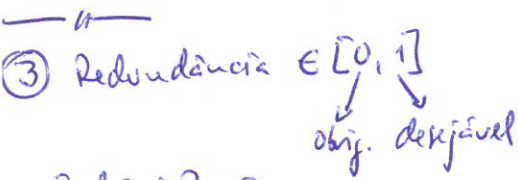 ③ Redundância ∈ [0, 1]
obrig. desejável